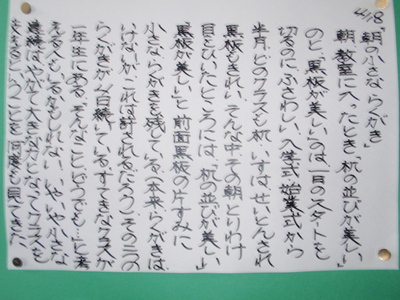 4/18
「朝の小さならくがき」
朝、教室に入ったとき「机の並びが美しい」
のと、黒板が美しいのは一日のスタートを
切るのにふさわしい。入学式・始業式から
半月、どのクラスも机・いすはせいとんされ
黒板もきれい。そんな中その朝とりわけ
目をひいたところには「机の並びが美しい」
黒板が美しいと前面黒板の片すみに
小さならくがきを残している。本来らくがきは
いけないが、これは許されるだろう。その三つの
らくがきが 日続いている。すてきなクラスが
一年生にある。そんなことどうでも…と考
える人もいるかもしれない いやいや小さな
はやがて大きな力となってクラスを